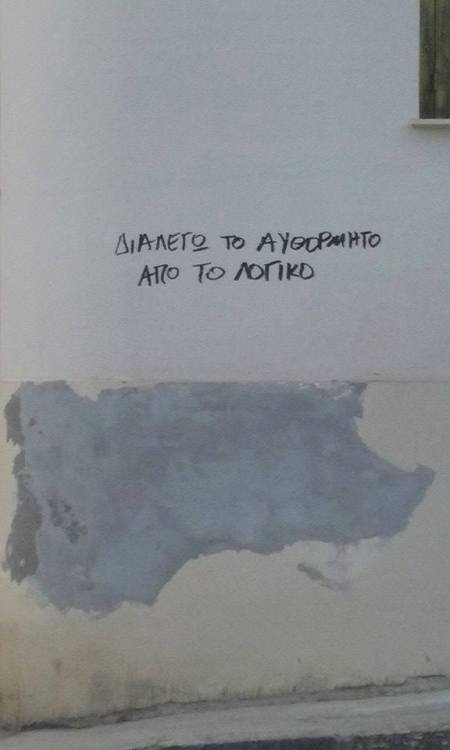 ΔΙΑΛΕΓΩ ΤΟ ΑΥΘΟΡΜΗΤΟ
ΑΠΟ ΤΟ ΛΟΓΙΚΟ